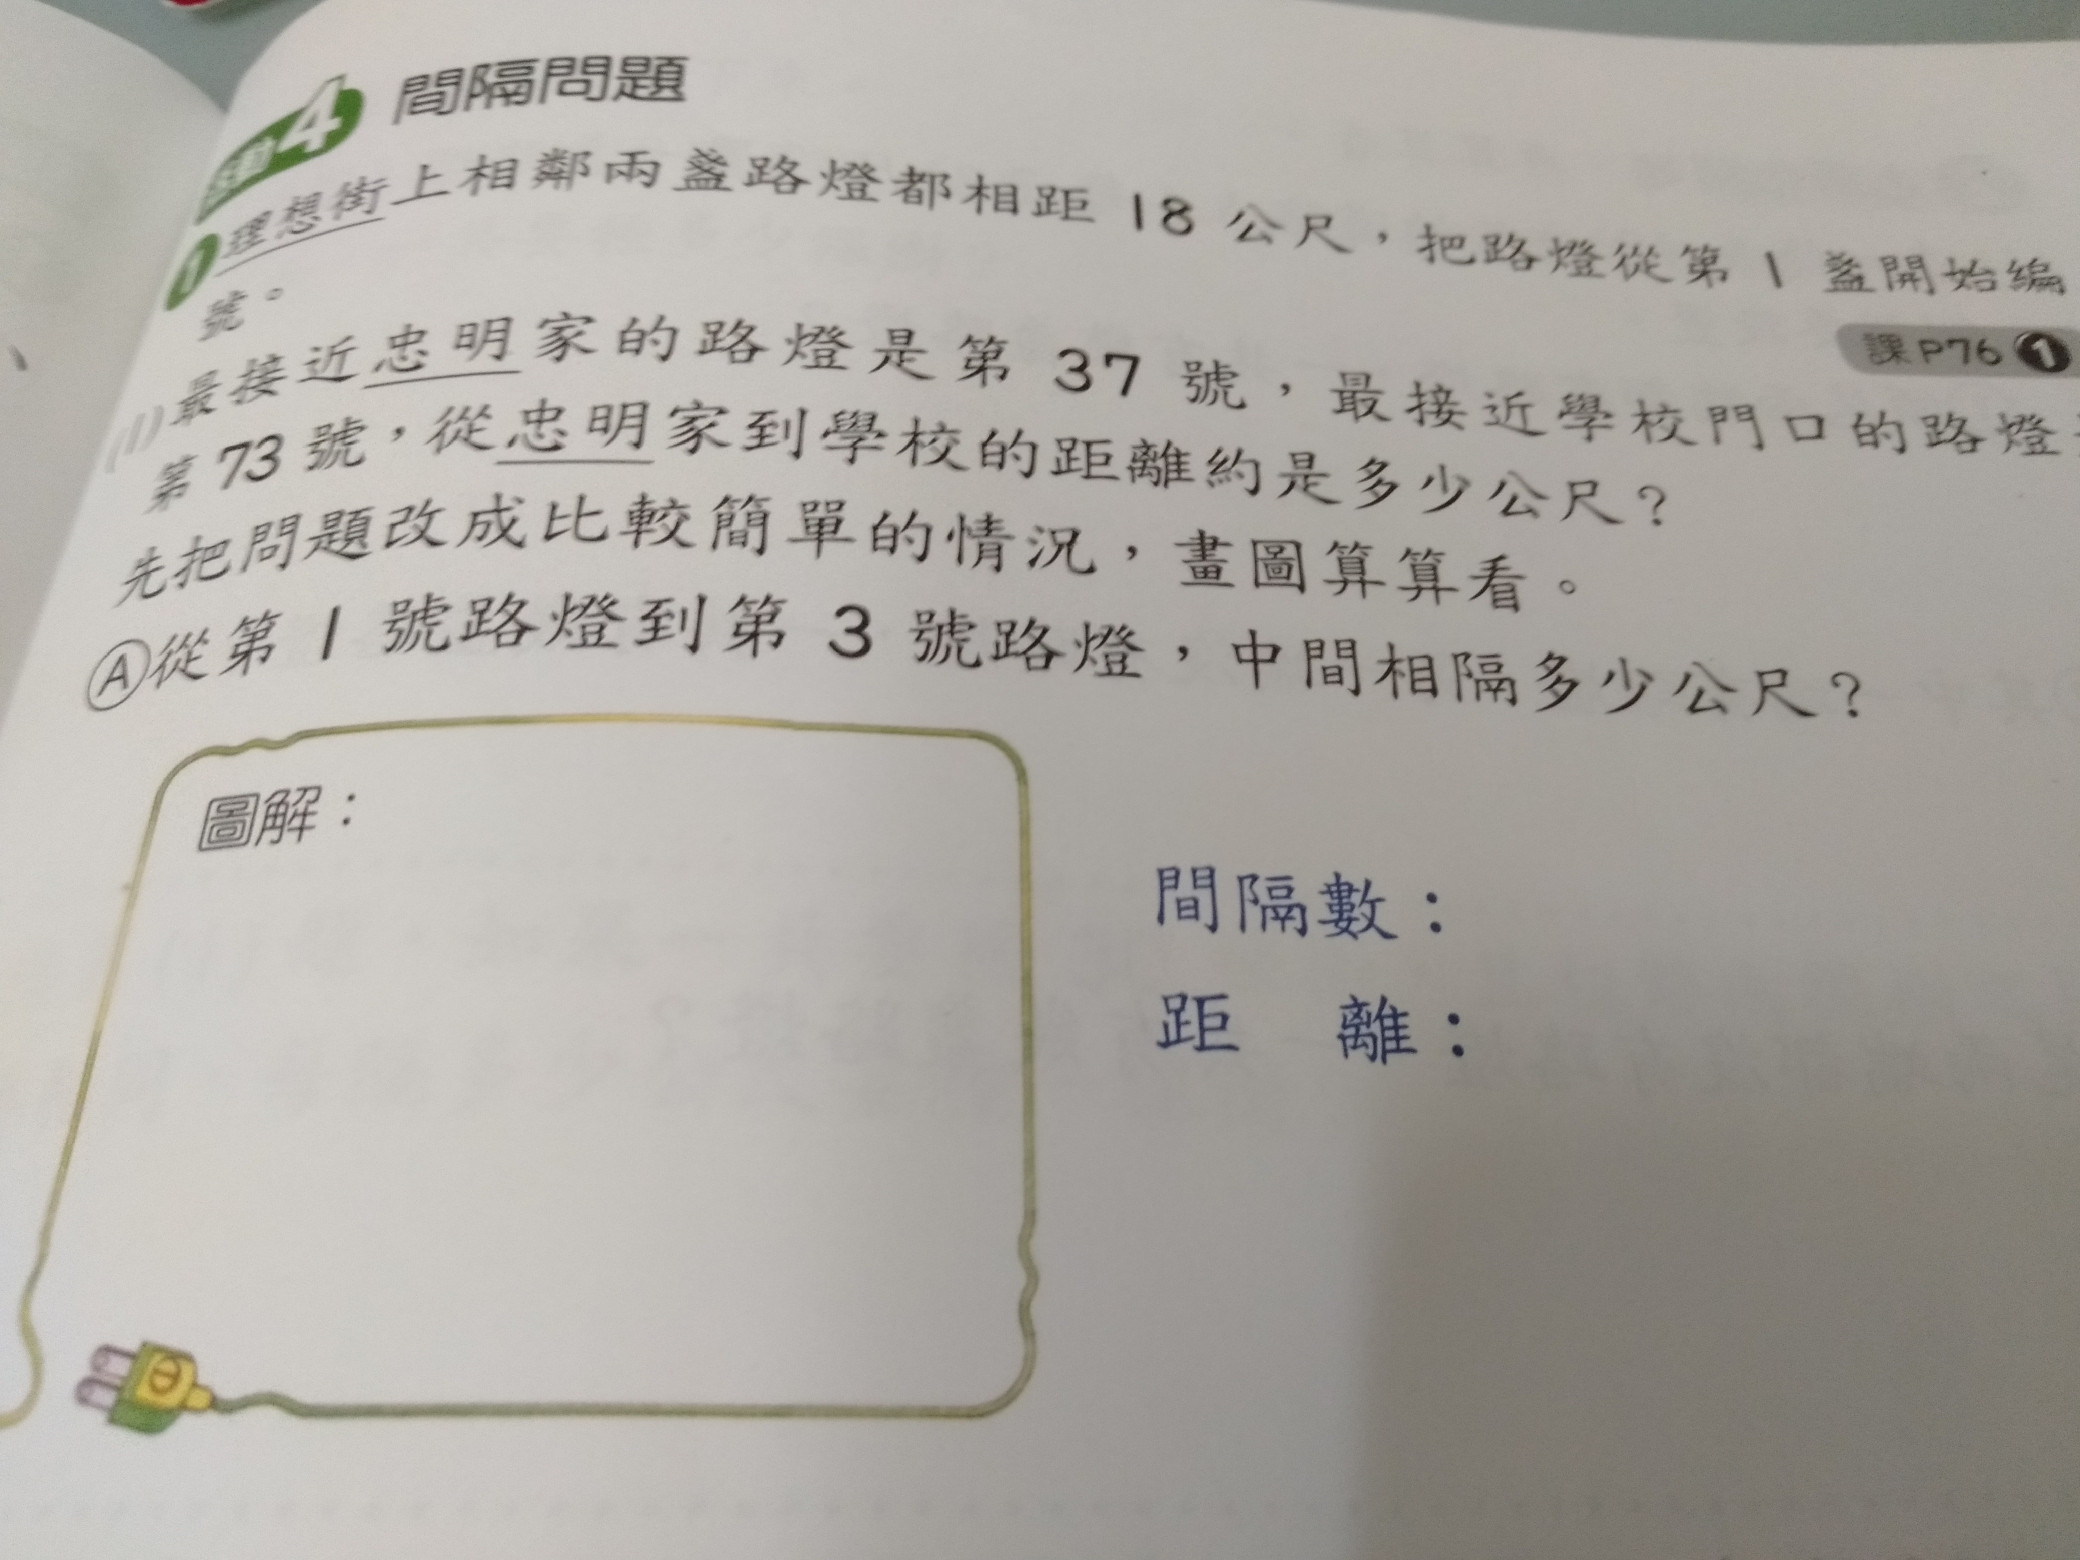 活動4 間隔問題
1 理想街上相鄰兩盞路燈都相距 18 公尺，把路燈從第 1 盞開始編
號。
課P76 1
(1)最接近忠明家的路燈是第 37 號，最接近學校門口的路燈
第 73 號，從忠明家到學校的距離約是多少公尺？
先把問題改成比較簡單的情況，畫圖算算看。
Ⓐ從第 1 號路燈到第 3 號路燈，中間相隔多少公尺？
圖解：
間隔數：
距 離：